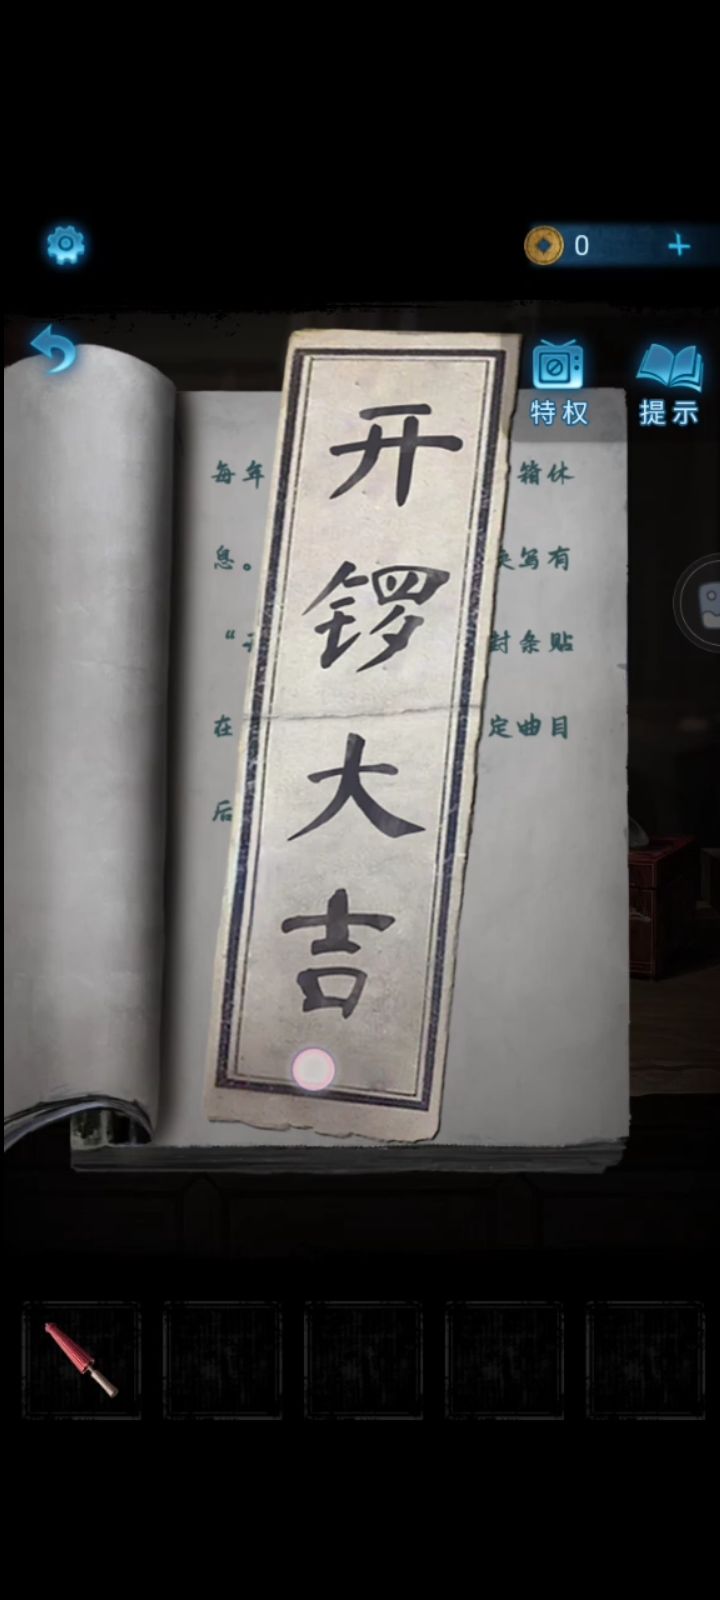 0
特权
提示
开锣大吉
每年
箱休
息。
写有
“
封条贴
在
定曲目
后